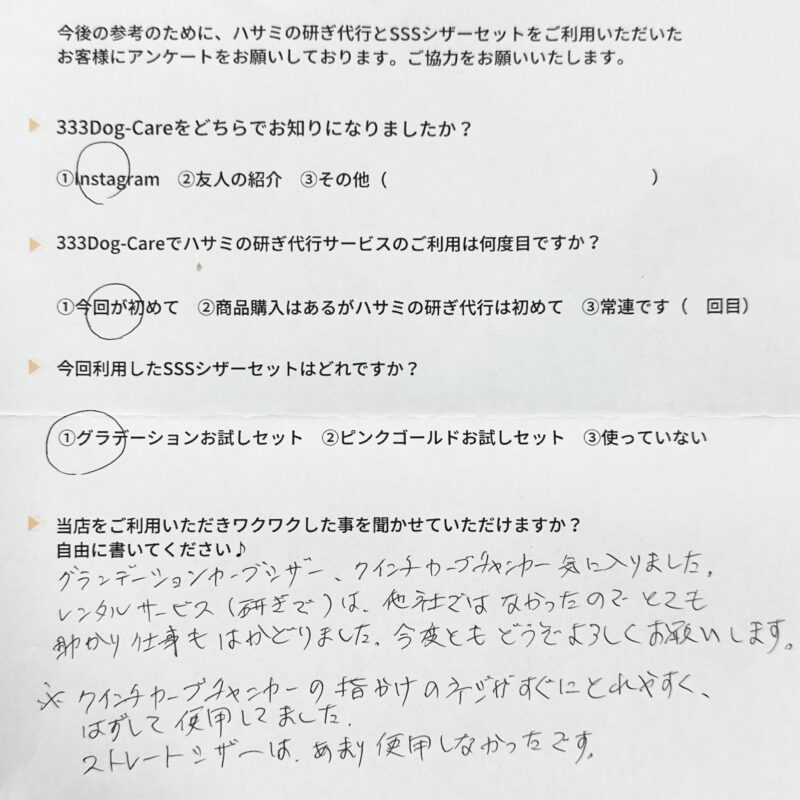 今後の参考のために、ハサミの研ぎ代行とSSSシザーセットをご利用いただいた
お客様にアンケートをお願いしております。ご協力をお願いいたします。
333Dog-Careをどちらでお知りになりましたか？
①Instagram ②友人の紹介 ③その他（ ）
333Dog-Careでハサミの研ぎ代行サービスのご利用は何度目ですか？
①今回が初めて ②商品購入はあるがハサミの研ぎ代行は初めて ③常連です（ 回目）
今回利用したSSSシザーセットはどれですか？
①グラデーションお試しセット ②ピンクゴールドお試しセット ③使っていない
当店をご利用いただきワクワクした事を聞かせていただけますか？
自由に書いてください♪
グランデーションカーブシザー、クインチカーブチャンカー気に入りました。
レンタルサービス（研ぎで）は、他社ではなかったのでとても
助かり仕事もはかどりました。今後ともどうぞよろしくお願いします。
※クインチカーブチャンカーの指かけのネジがすぐにとれやすく、
はずして使用してました。
ストレートシザーは、あまり使用しなかったです。